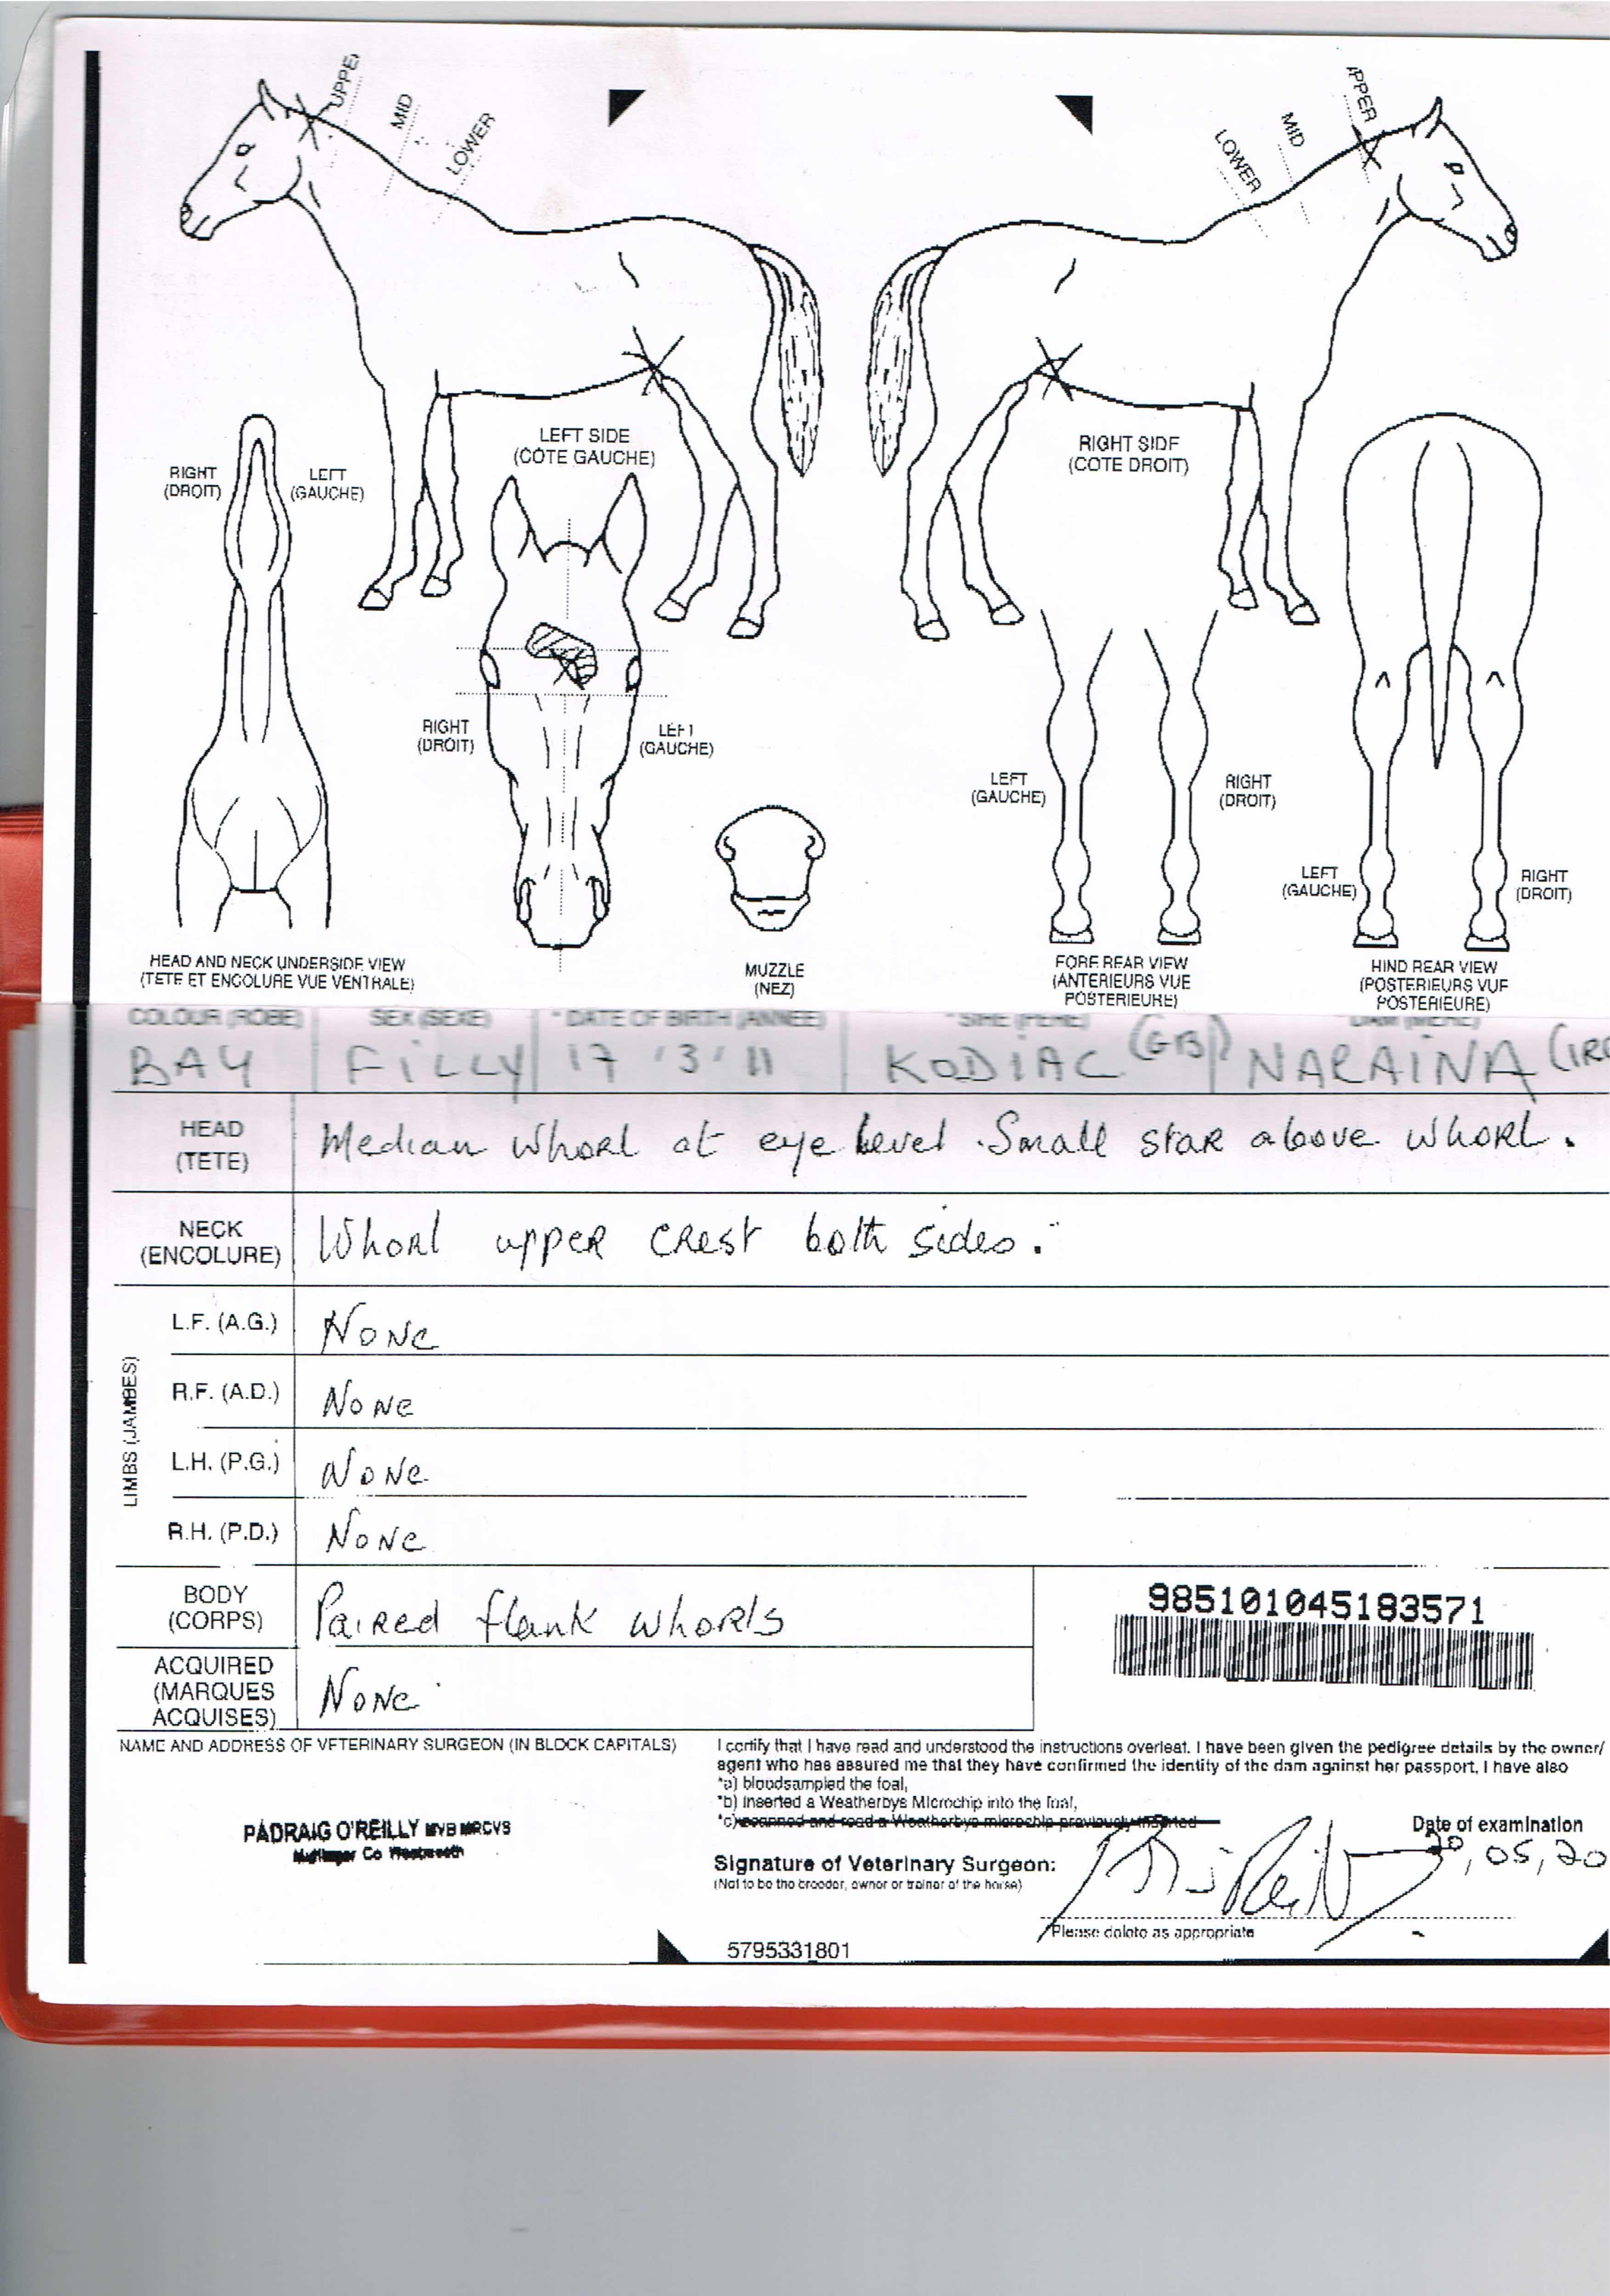 UPPER
MID
LOWER
LOWER
MID
UPPER
LEFT SIDE
(COTE GAUCHE)
RIGHT SIDE
(COTE DROIT)
RIGHT
(DROIT)
LEFT
(GAUCHE)
RIGHT
(DROIT)
LEFT
(GAUCHE)
LEFT
(GAUCHE)
RIGHT
(DROIT)
LEFT
(GAUCHE)
RIGHT
(DROIT)
HEAD AND NECK UNDERSIDE VIEW
(TETE ET ENCOLURE VUE VENTRALE)
MUZZLE
(NEZ)
FORE REAR VIEW
(ANTERIEURS VUE
POSTERIEURE)
HIND REAR VIEW
(POSTERIEURS VUE
POSTERIEURE)
COLOUR (ROBE) SEX (SEXE) * DATE OF BIRTH (ANNEE) * SIRE (PERE) * DAM (MERE)
BAY FILLY 17 '3' 11 KODIAC (GB) NARAINA (IRE
HEAD
(TETE)
Median whorl at eye level. Small star above whorl.
NECK
(ENCOLURE)
Whorl upper crest both sides.
LIMBS (JAMBES)
L.F. (A.G.) None
R.F. (A.D.) None
L.H. (P.G.) None
R.H. (P.D.) None
BODY
(CORPS)
Paired flank whorls
985101045183571
ACQUIRED
(MARQUES
ACQUISES)
None
NAME AND ADDRESS OF VETERINARY SURGEON (IN BLOCK CAPITALS)
PÁDRAIG O'REILLY MVB MRCVS
Mullingar Co Westmeath
I certify that I have read and understood the instructions overleaf. I have been given the pedigree details by the owner/
agent who has assured me that they have confirmed the identity of the dam against her passport. I have also
*a) bloodsampled the foal,
*b) inserted a Weatherbys Microchip into the foal,
*c) scanned and read a Weatherbys microchip previously inserted
Date of examination
20,05,20
Signature of Veterinary Surgeon:
(Not to be the breeder, owner or trainer of the horse)
Please delete as appropriate
5795331801